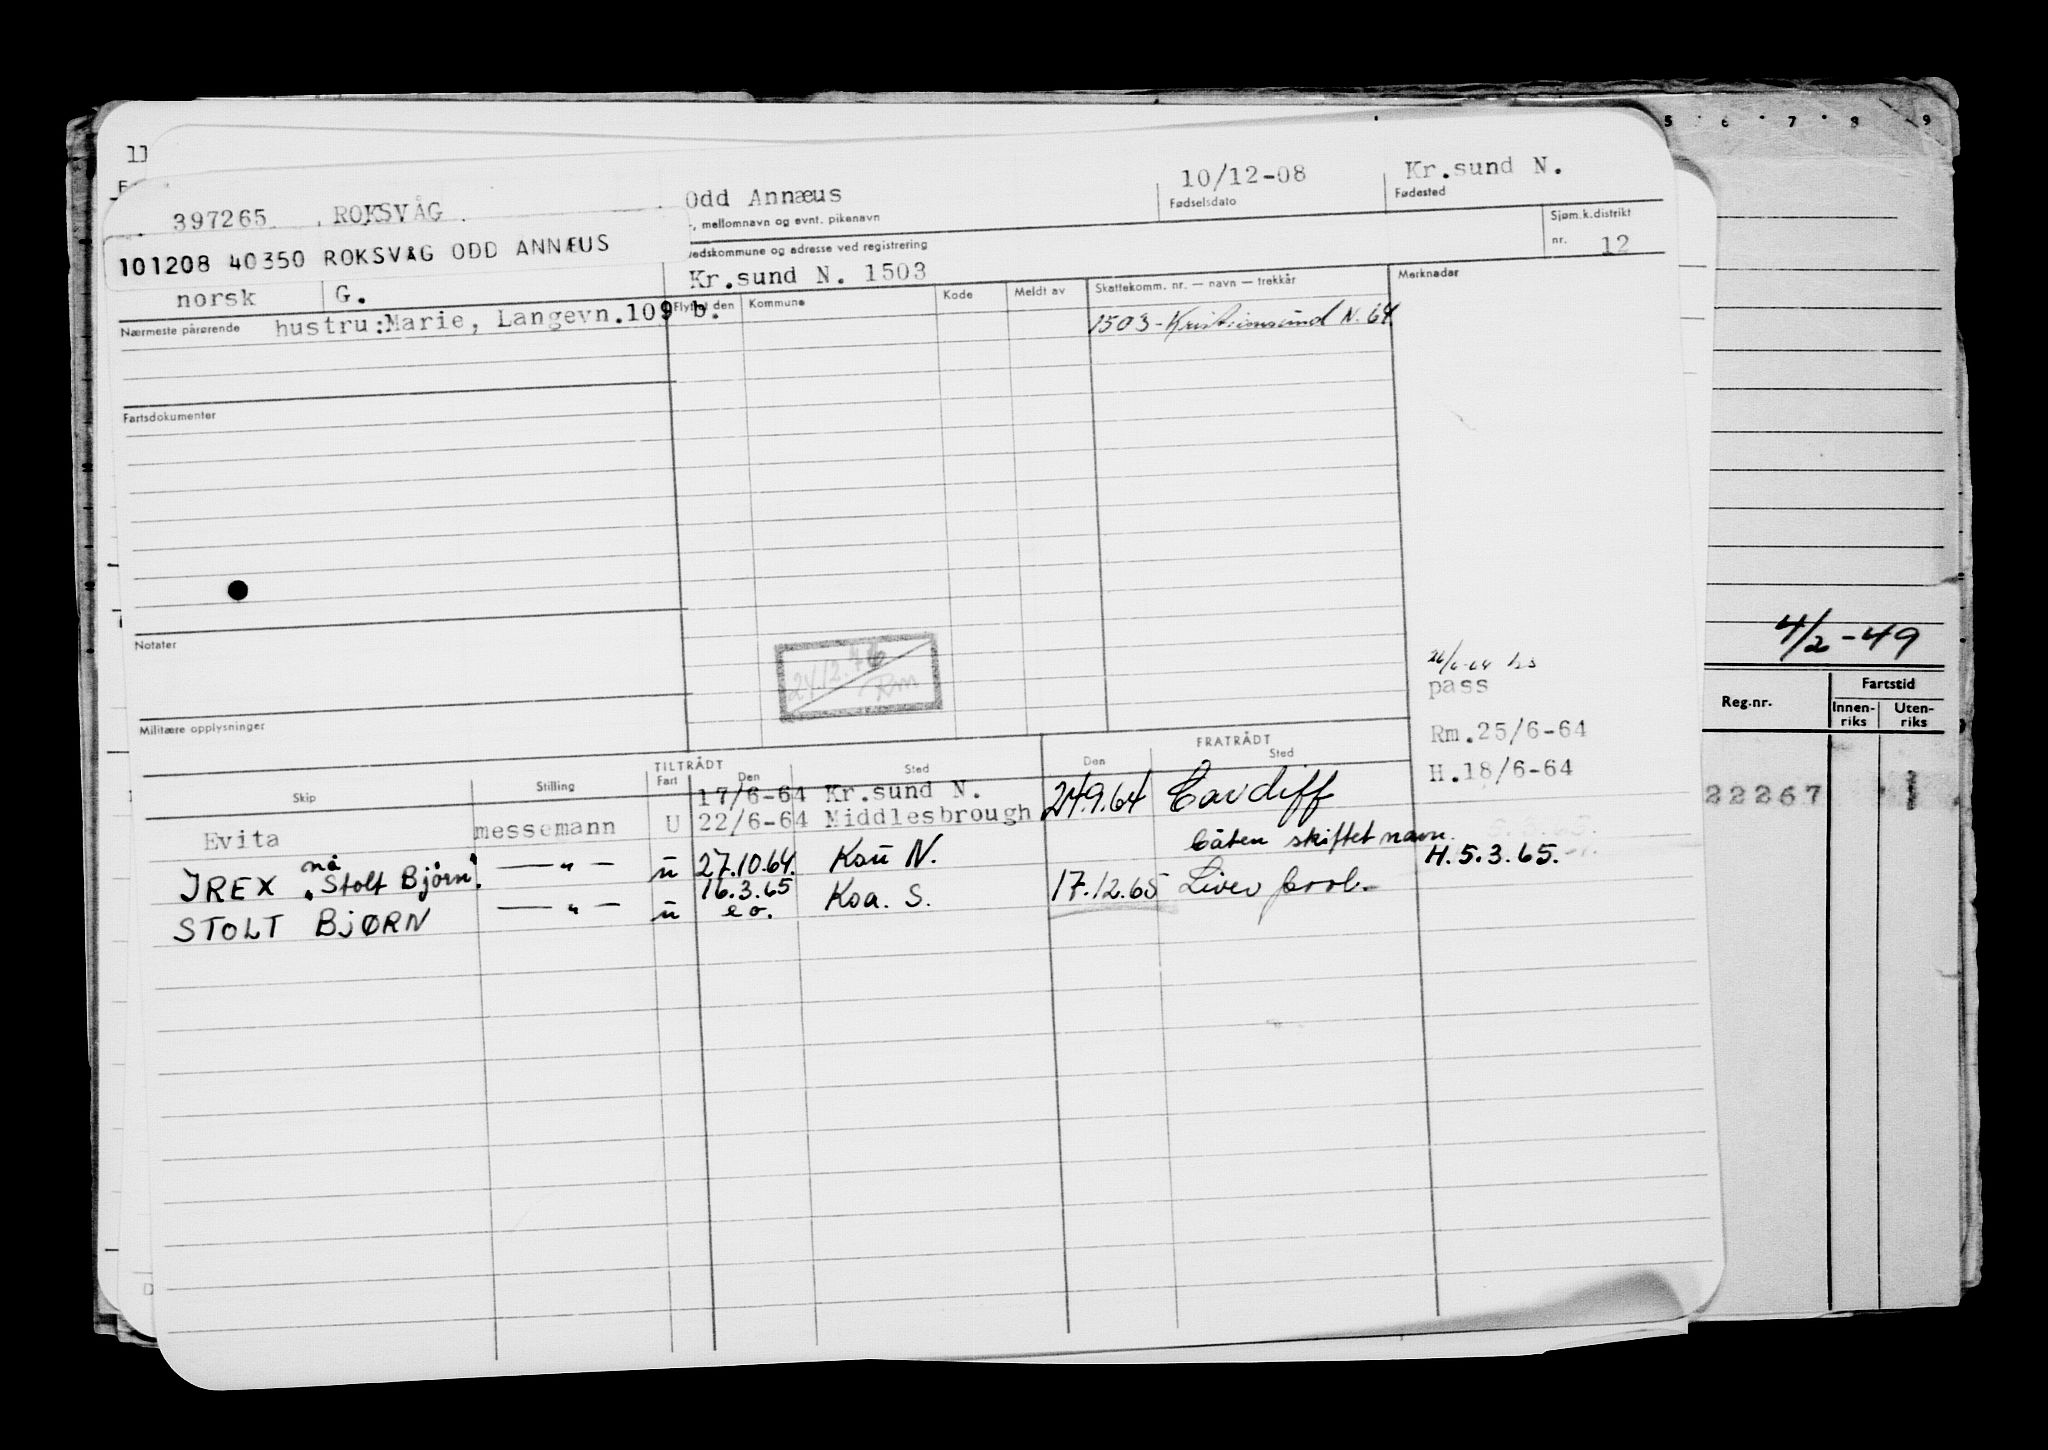 11
5 6 7 8 9
397265 ROKSVÅG. Odd Annæus 10/12-08 Kr.sund N.
, mellomnavn og evnt. pikenavn Fødselsdato Fødested
101208 40350 ROKSVÅG ODD ANNÆUS
edskommune og adresse ved registrering Sjøm.k.distrikt
nr. 12
norsk G. Kr.sund N. 1503
Flyttet den Kommune Kode Meldt av Skattekomm. nr. — navn — trekkår Merknader
Nærmeste pårørende hustru:Marie, Langevn.109 b.
1503-Kristiansund N. 64.
Fartsdokumenter
Notater
24.12.76
Rm
Militære opplysninger
pass
Rm.25/6-64
H.18/6-64
4/2-49
Reg.nr. Fartstid
Innen-riks Uten-riks
22267
TILTRÅDT FRATRÅDT
Skip Stilling Fart Den Sted Den Sted
17/6-64 Kr.sund N.
Evita messemann U 22/6-64 Middlesbrough 24.9.64 Cardiff
nå båten skiftet navn.
IREX „Stolt Bjørn" —"— u 27.10.64. Ksu N. H.5.3.65.
16.3.65
STOLT BJØRN —"— u e o. Ksa. S. 17.12.65 Liverpool.